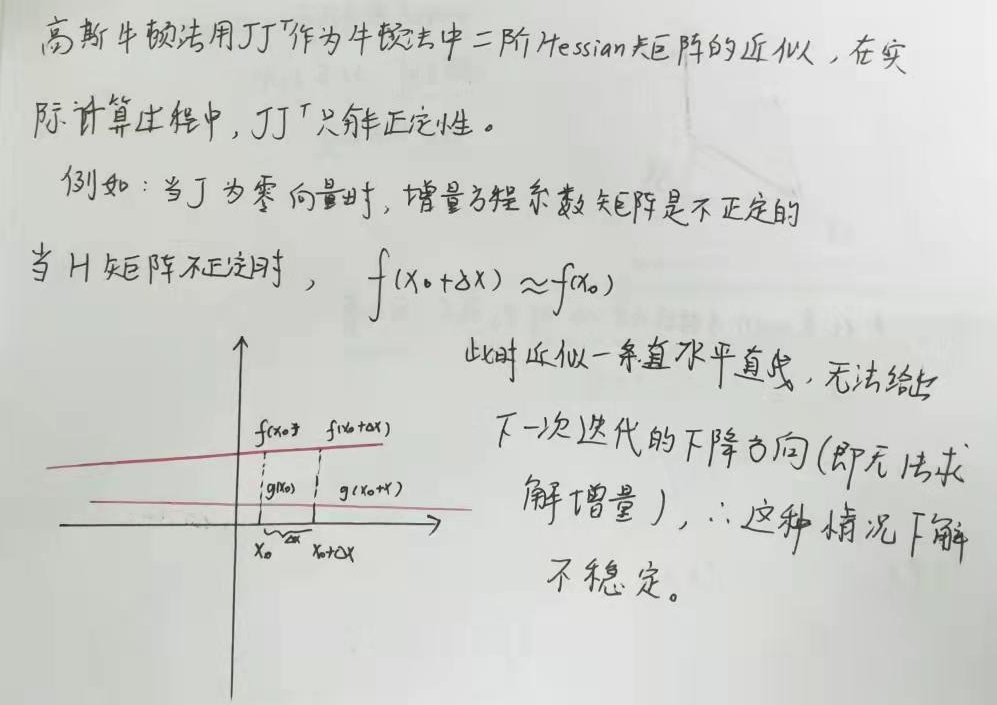 高斯牛顿法用JJᵀ作为牛顿法中二阶Hessian矩阵的近似，在实
际计算过程中，JJᵀ只有半正定性。
例如：当J为零向量时，增量方程系数矩阵是不正定的
当H矩阵不正定时， f(x₀+δx)≈f(x₀)
此时近似一条直水平直线，无法给出
下一次迭代的下降方向（即无法求
解增量），∴这种情况下解
不稳定。
f(x₀) f(x₀+Δx)
g(x₀) g(x₀+x)
Δx
x₀ x₀+Δx